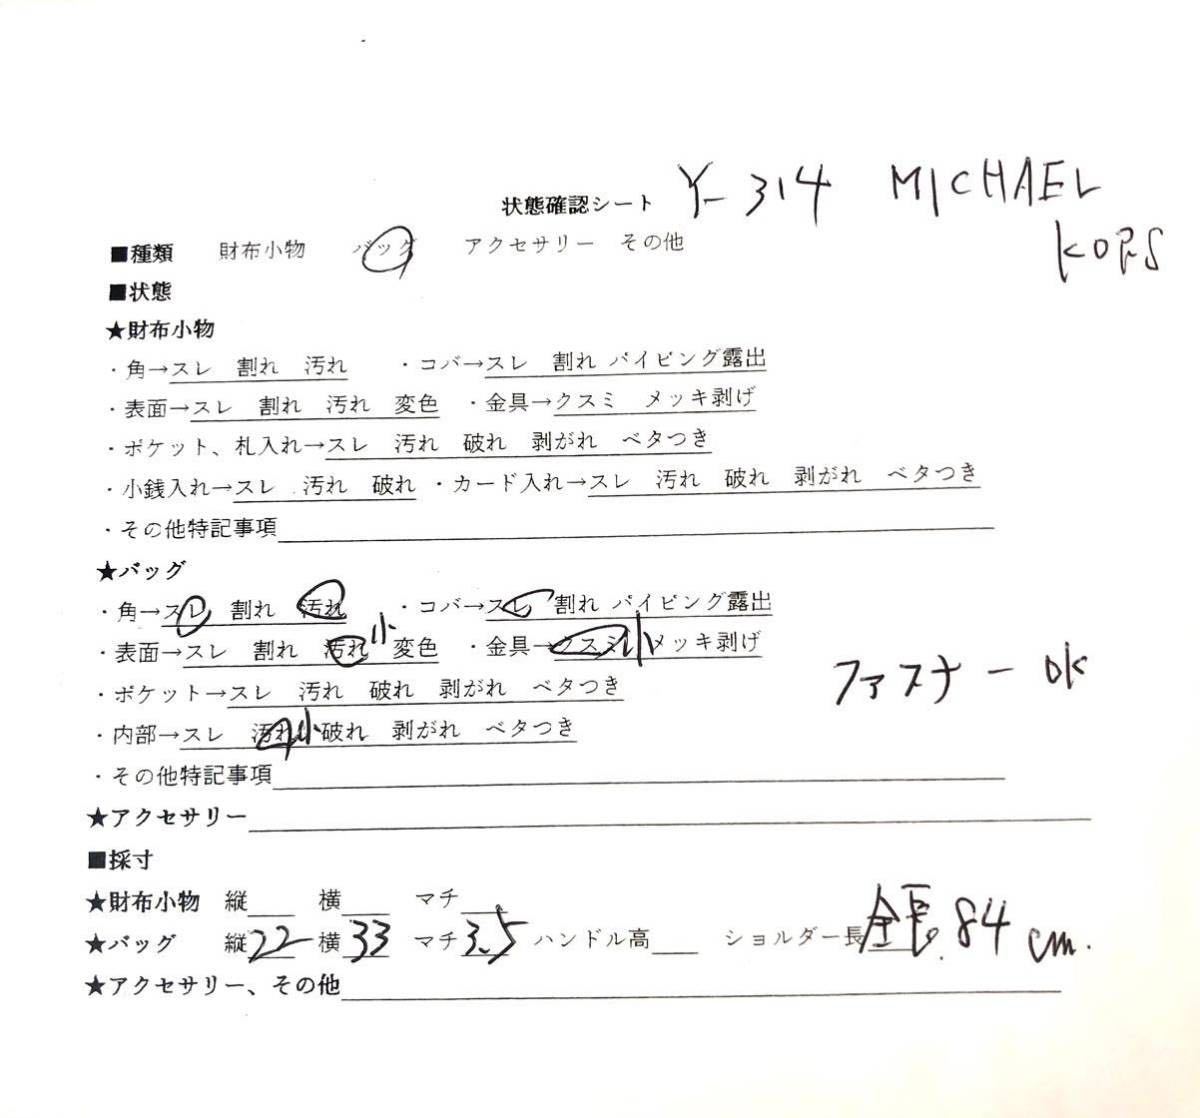 状態確認シート Y-314 MICHAEL
KORS
■種類 財布小物 バッグ アクセサリー その他
■状態
★財布小物
・角→スレ 割れ 汚れ ・コバ→スレ 割れ パイピング露出
・表面→スレ 割れ 汚れ 変色 ・金具→クスミ メッキ剥げ
・ポケット、札入れ→スレ 汚れ 破れ 剥がれ ベタつき
・小銭入れ→スレ 汚れ 破れ ・カード入れ→スレ 汚れ 破れ 剥がれ ベタつき
・その他特記事項
★バッグ
・角→スレ 割れ 汚れ ・コバ→スレ 割れ パイピング露出
・表面→スレ 割れ 汚れ小 変色 ・金具→クスミ小 メッキ剥げ
ファスナー OK
・ポケット→スレ 汚れ 破れ 剥がれ ベタつき
・内部→スレ 汚れ小 破れ 剥がれ ベタつき
・その他特記事項
★アクセサリー
■採寸
★財布小物 縦 横 マチ
★バッグ 縦22 横33 マチ3.5 ハンドル高 ショルダー長 全長 84 cm.
★アクセサリー、その他